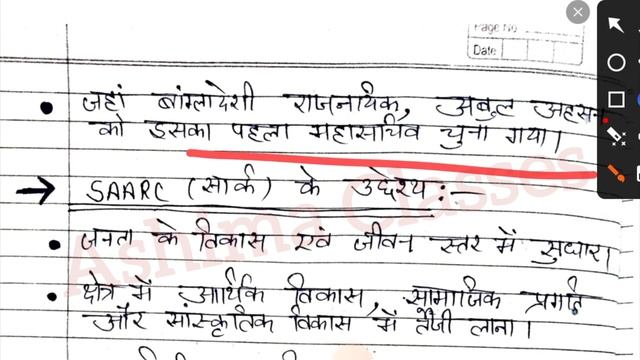 Page No
Date
जहां बांग्लादेशी राजनायिक, अबुल अहसन
को इसका पहला महासचिव चुना गया।
→ SAARC (सार्क) के उद्देश्य :-
• जनता के विकास एवं जीवन स्तर में सुधार।
• क्षेत्र में आर्थिक विकास, सामाजिक प्रगति
और सांस्कृतिक विकास में तेजी लाना।
Ashima Classes